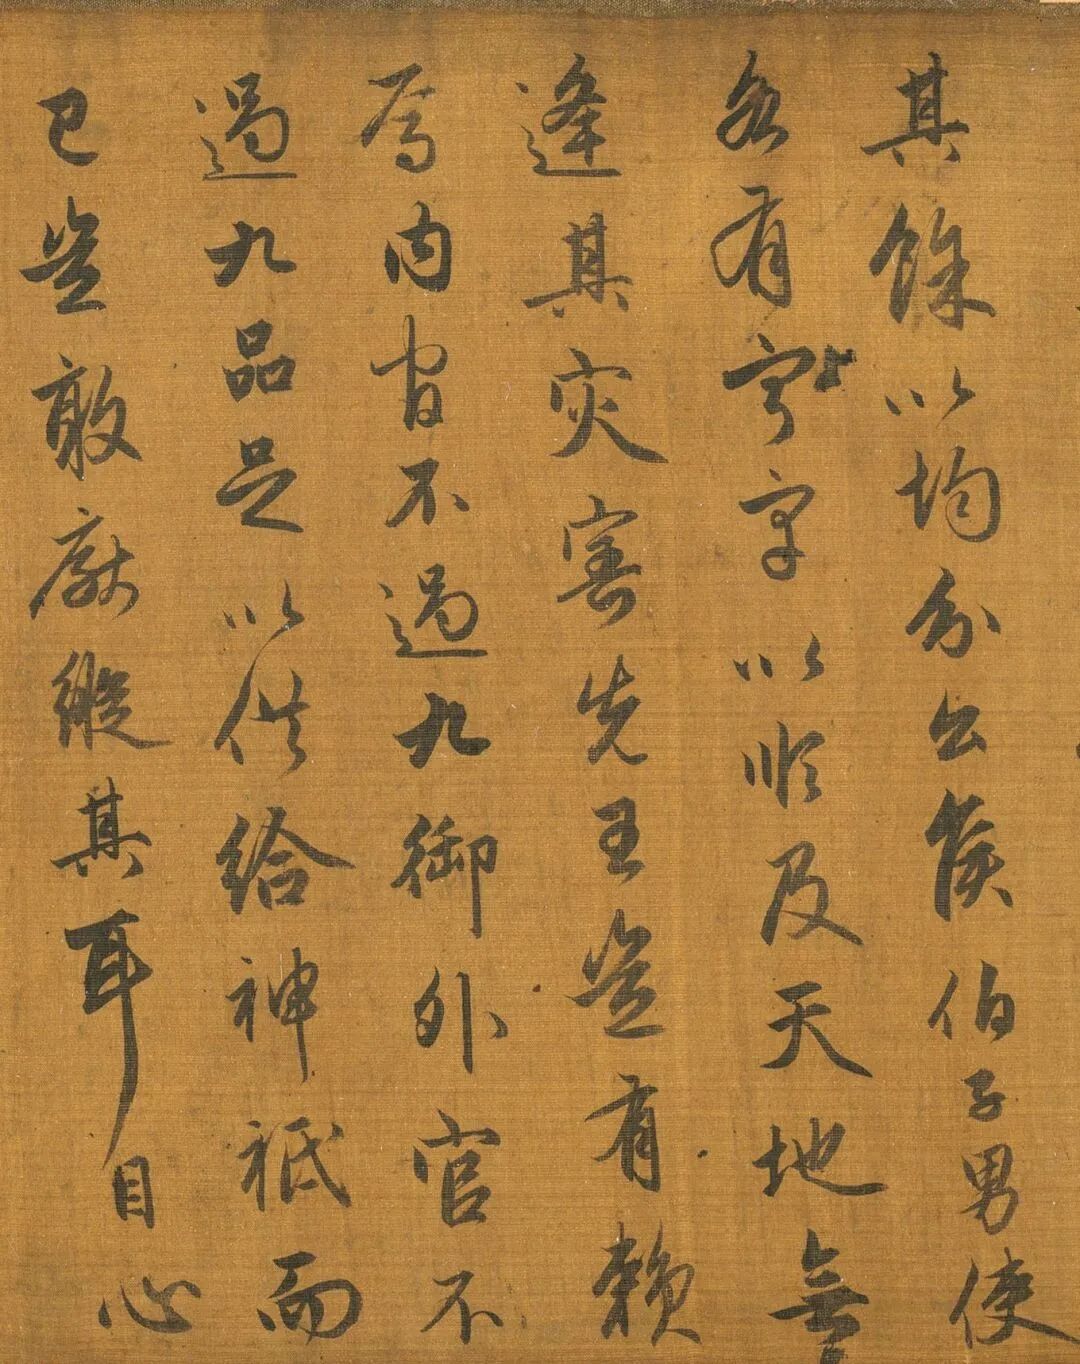 其餘以均分公侯伯子男使
各有寧宇以順及天地無
逢其灾害先王豈有賴
焉內官不過九御外官不
過九品足以供給神祇而
已豈敢厭縱其耳目心